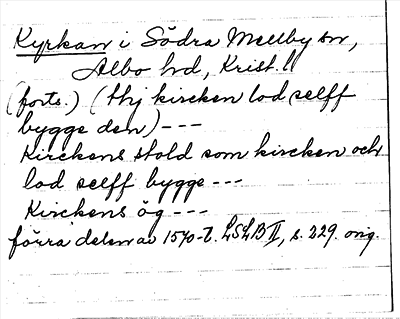 Kyrkan i Södra Mellby sn,
Albo hd, Krist. l.
(forts.) (thj kircken lod selff
bygge den) ---
Kirckens stold som kircken och
lod selff bygge ---
Kirckens ög ---
förra delen av 1570-t. LSLB II, s. 229. orig.